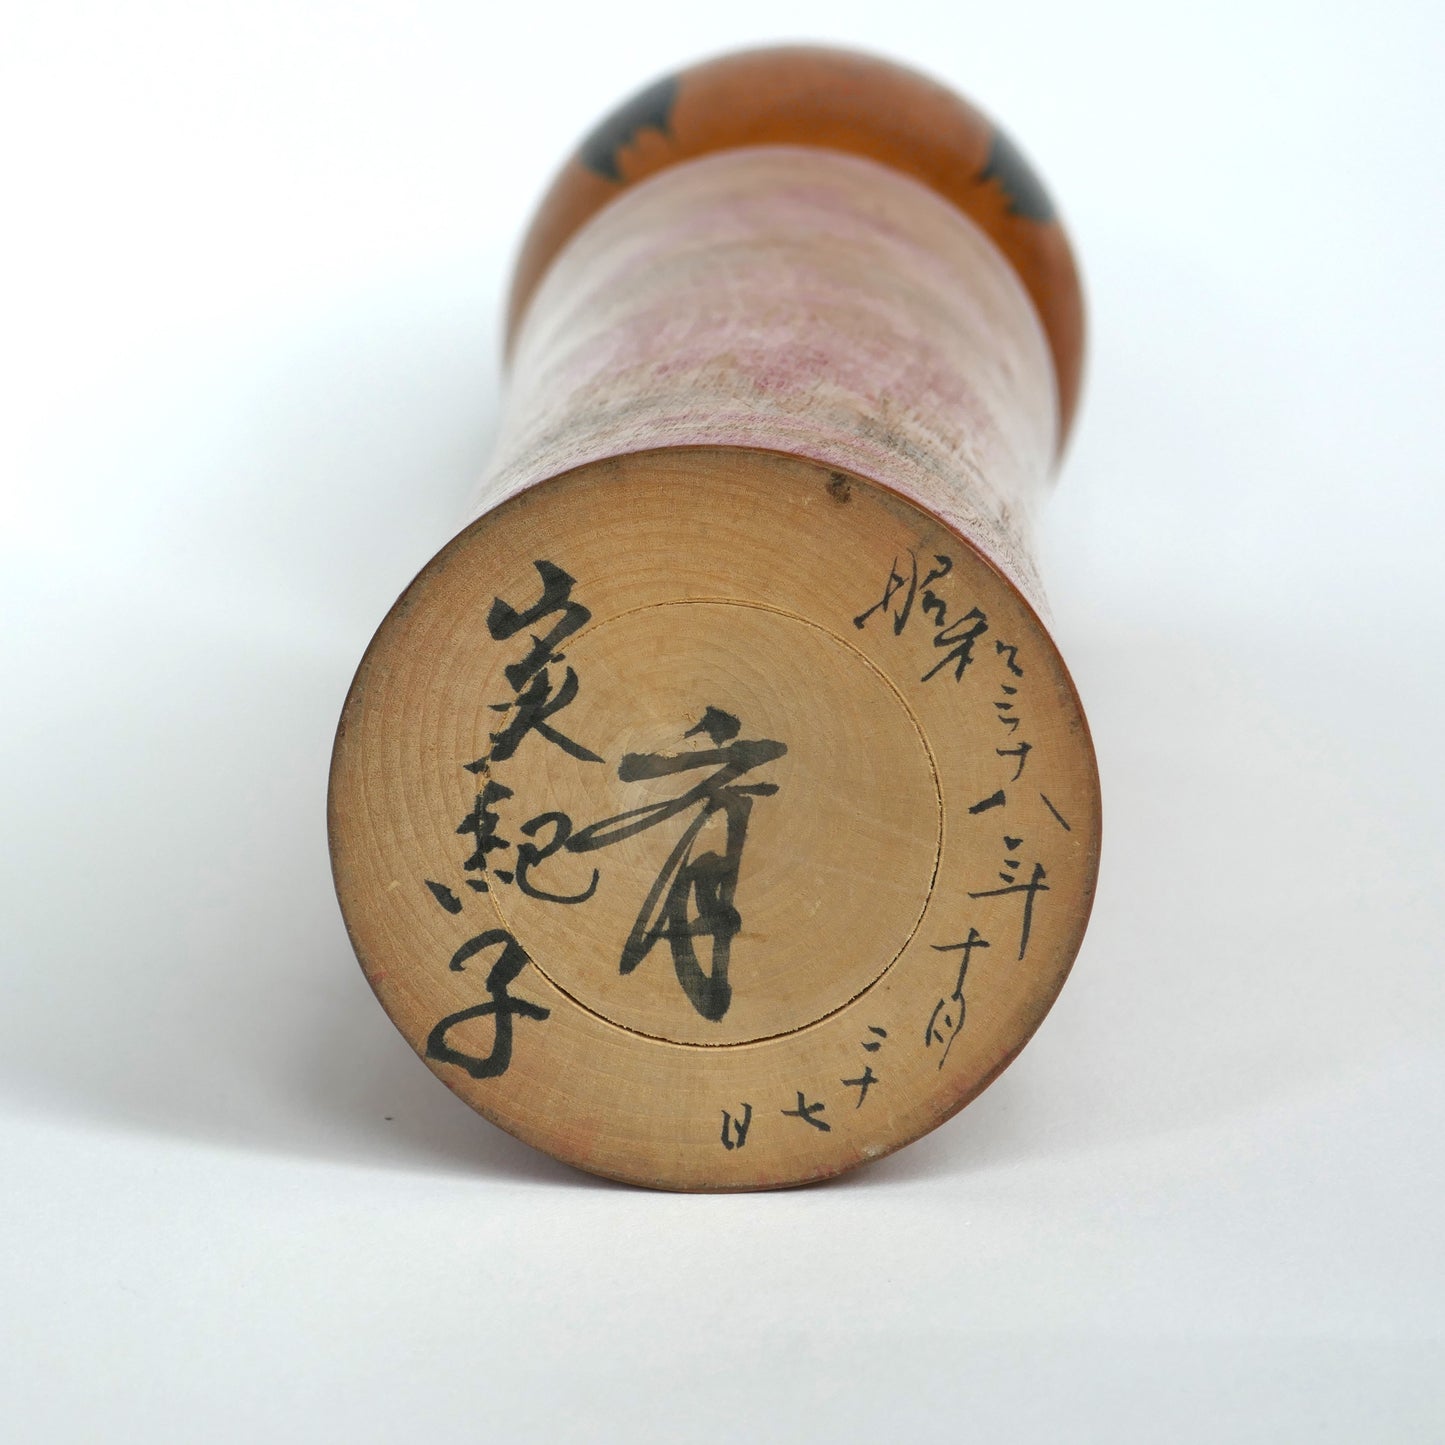 昭和三十八年十月二十七日
育
美紀子